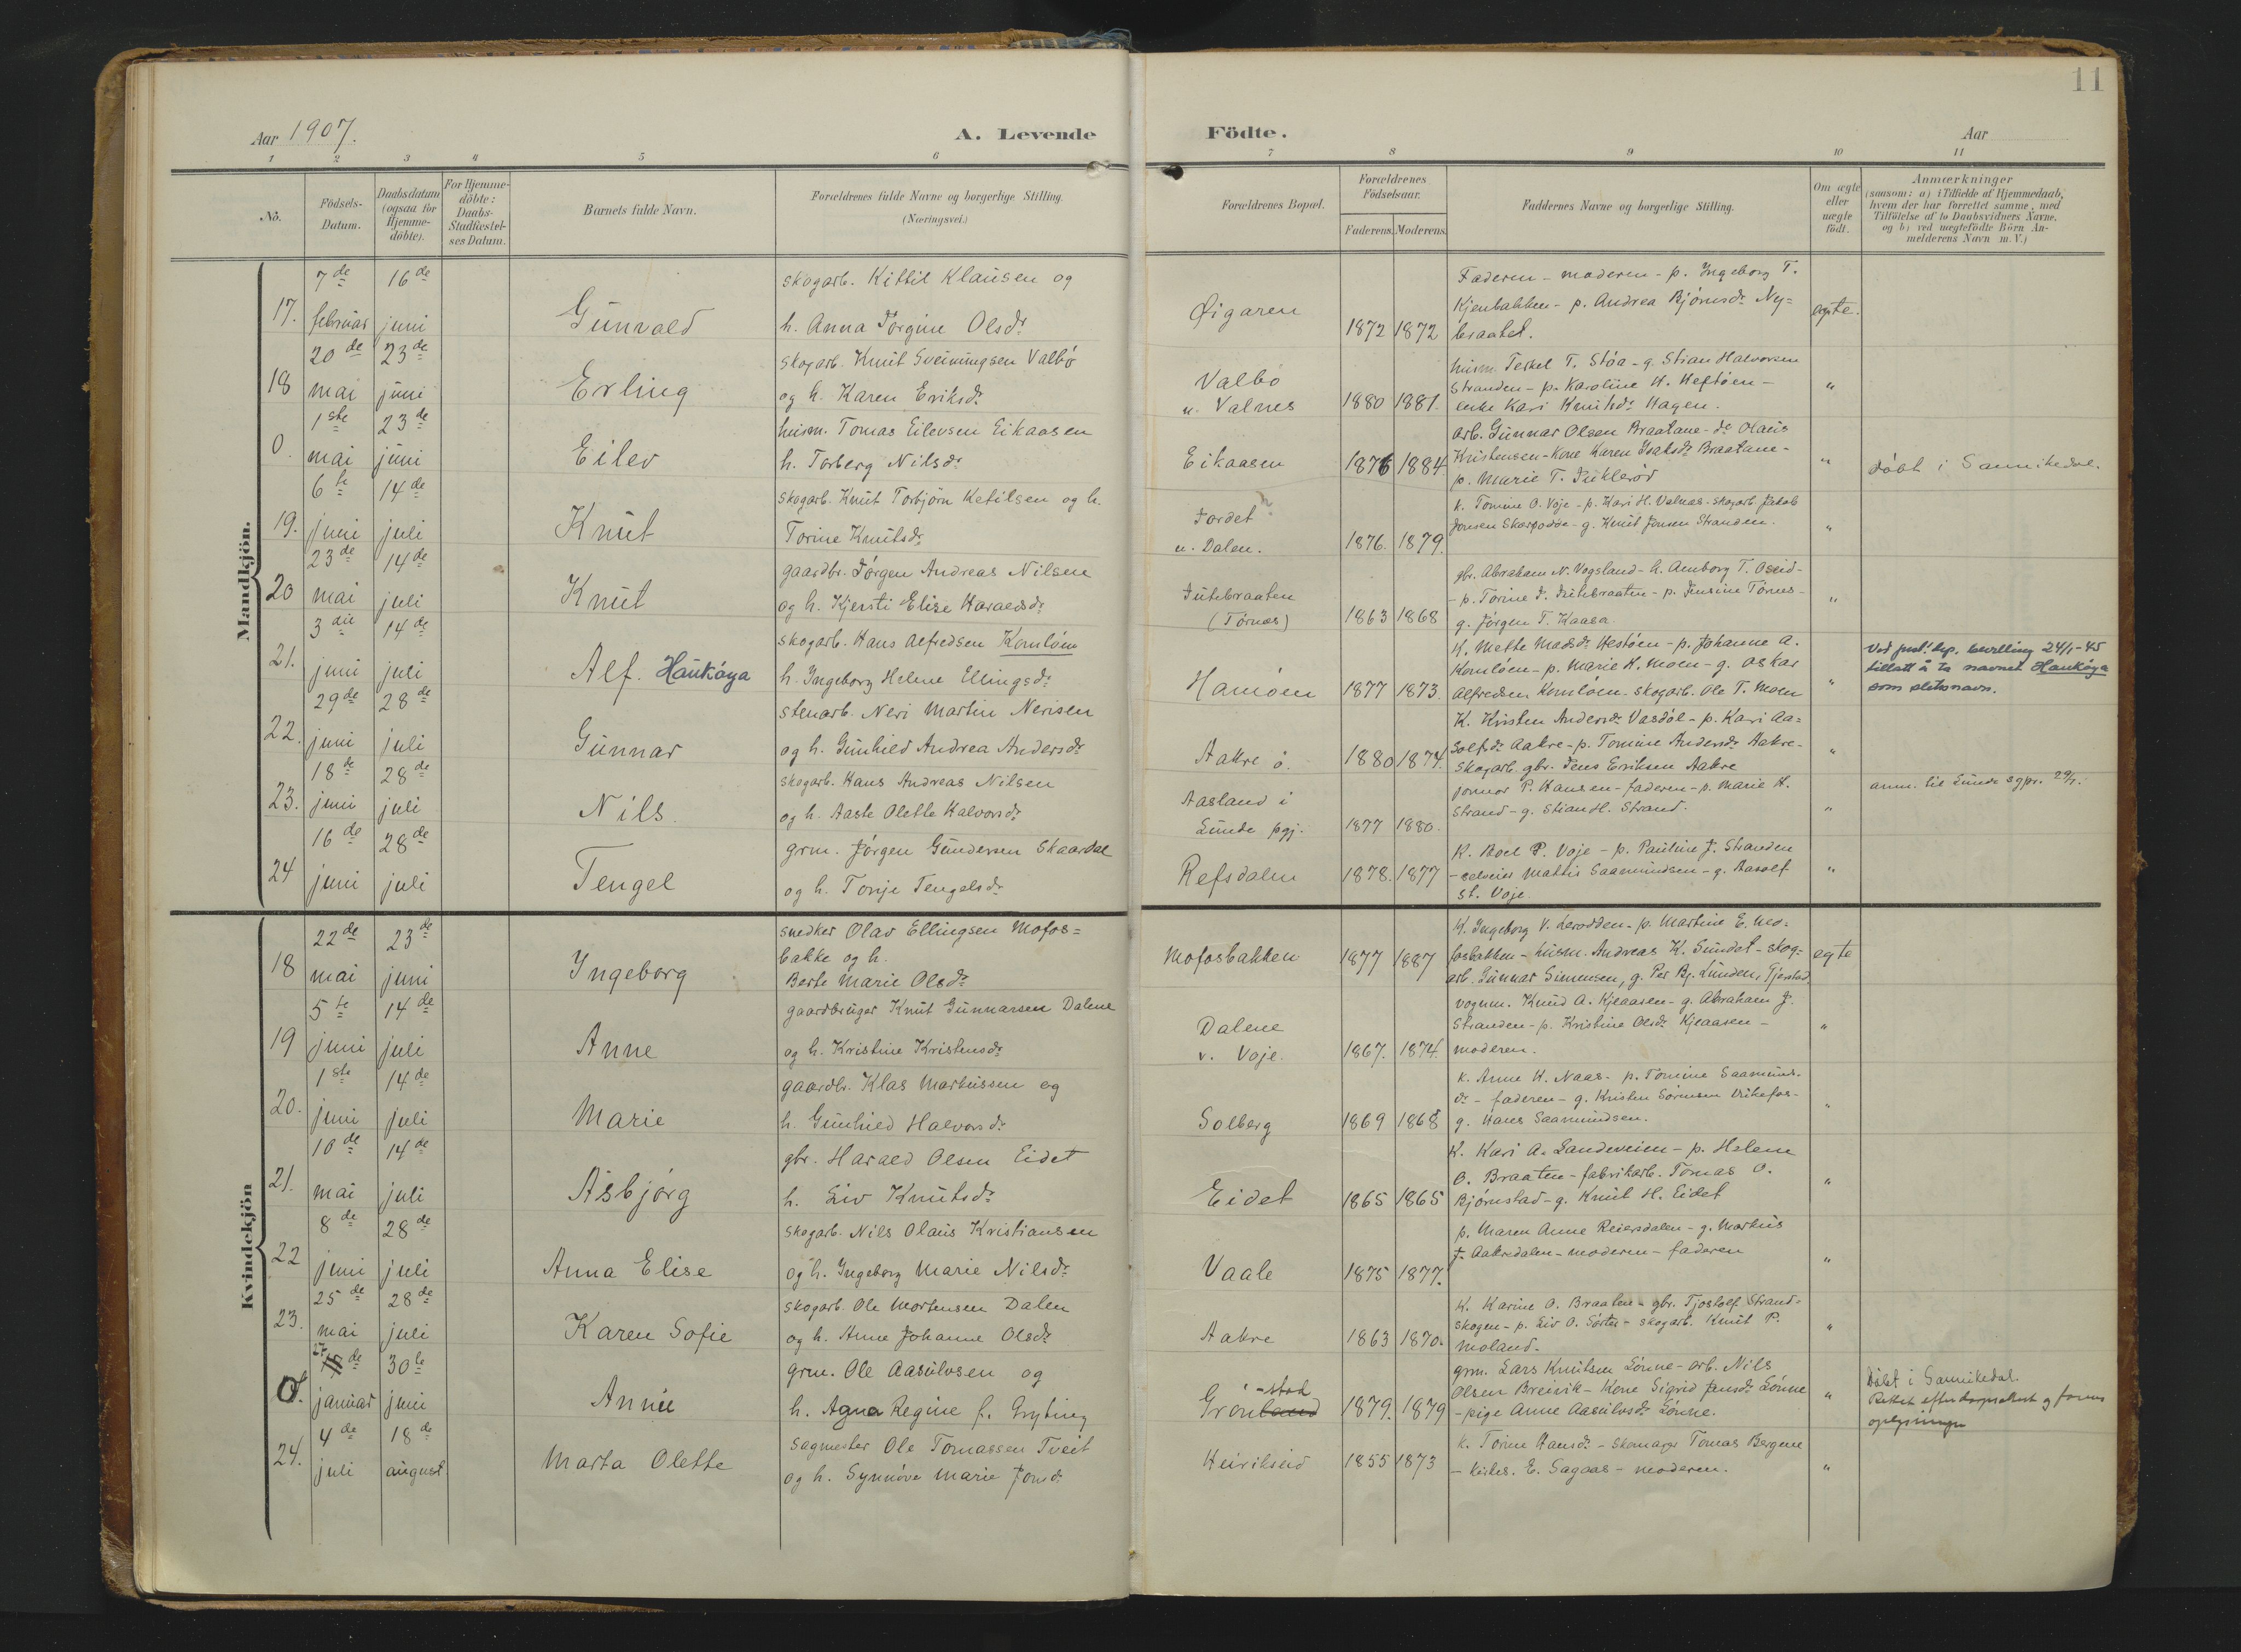 11
Aar 1907.
A. Levende
Födte.
Aar
1 2 3 4 5 6 7 8 9 10 11
No.
Födsels-
Datum.
Daabsdatum
(ogsaa for
Hjemme-
döbte).
For Hjemme-
döbte:
Daabs-
Stadfæstel-
ses Datum.
Barnets fulde Navn.
Forældrenes fulde Navne og borgerlige Stilling.
(Næringsvei.)
Forældrenes Bopæl.
Forældrenes
Födselsaar.
Faderens. Moderens.
Faddernes Navne og borgerlige Stilling.
Om ægte
eller
uægte
födt.
Anmærkninger
(saasom: a) i Tilfælde af Hjemmedaab,
hvem der har forrettet samme, med
Tilföielse af to Daabsvidners Navne,
og b) ved uægtefödte Börn An-
melderens Navn m. V.)
Mandkjön.
7de 16de
17. februar juni
Gunvald
skogarb. Kittil Klausen og
h. Anna Torgine Olsdr
Øigaren
1872 1872
Faderen - moderen - p. Ingeborg T.
Kjenbakken - p. Andrea Bjørnsdr Ny-
braatet.
ægte.
20de 23de
18 mai juni
Erling
skogarb. Knut Sveinungsen Valbö
og h. Karen Eriksdr
Valbö
u. Valnes
1880 1881.
husm. Terkel T. Stöa - g. Stian Halvorsen
Stranden - p. Karoline H. Heftöen -
enke Kari Knutsdr Hagen.
"
1ste 23de
0. mai juni
Eilev
husm. Tomas Eilevsen Eikaasen
h. Torberg Nilsdr
Eikaasen
1876 1884
arb. Gunnar Olsen Braatane - do Olaus
Kristensen - Kone Karen Isaksdr Braatane -
p. Marie T.
"
döbt i Sannikedal.
6te 14de
19. juni juli
Knut
skogarb. Knut Torbjörn Ketilsen og h.
Torine Knutsdr
Jordet
u. Dalen.
1876. 1879.
k. Tomine O. Voje - p. Kari H. Valnas - skogarb. Jakob
Jonsen Skarpodde - g. Knut Jonsen Stranden.
"
23de 14de
20 mai juli
Knut
gaardbr. Jörgen Andreas Nilsen
og h. Kjersti Elise Haraldsdr
Jutebraaten
(Törnes)
1863 1868
gbr. Abraham N. Vogsland - h. Amborg T. Oseid -
- p. Torine J. Jutebraaten - p. Jensine Törnes -
g. Jörgen T. Kaasa
"
3die 14de
21. juni juli
Alf. Haukøya
skogarb. Hans Alfredsen Komlöen
h. Ingeborg Helene Ellingsdr
Hamoen
1877 1873.
K. Mette Madsdr Hestöen - p. Johanne A.
Komlöen - p. Marie H. Moen - g. Oskar
Alfredsen Komlöen - skogarb. Ole T. Moen
"
Ved just. dep. bevilling 24/1-45
tillatt å ta navnet Haukøya
som slektsnavn.
29de 28de
22. juni juli
Gunnar
stenarb. Neri Martin Nerisen
og h. Gunhild Andrea Andersdr
Aakre ö.
1880 1874.
K. Kristen Andersdr Vasdöl - p. Kari Aa-
solfsdr Aakre - p. Tomine Andersdr Aakre -
skogarb. gbr. Jens Eriksen Aakre
"
18de 28de
23. juni juli
Nils.
skogarb. Hans Andreas Nilsen
og h. Aaste Olette Halvorsdr
Aasland i
Lunde pgj.
1877 1880.
P. Hansen - faderen - p. Marie H.
Strand - g. Stian H. Strand.
"
anm. til Lunde sgpr. 29/7.
16de 28de
24 juni juli
Tengel
grm. Jörgen Gundersen Skaardal
og h. Tonje Tengelsdr
Refsdalen
1878. 1877
K. Boel P. Voje - p. Pauline J. Stranden
- selveier Mattis Saamundsen - g. Aasolf
St. Voje.
"
Kvindekjön
22de 23de
18 mai juni
Ingeborg
snedker Olav Ellingsen Mofos-
bakke og h.
Berte Marie Olsdr
Mofosbakken
1877 1887
K. Ingeborg V. - p. Martine E. Mo-
fosbakken - husm. Andreas K. Sundet - skog-
arb. Gunnar Simensen, g. Per Bj. Lunden,
egte
5te 14de
19 juni juli
Anne
gaardbruger Knut Gunnarsen Dalene
og h. Kristine Kristensdr
Dalene
v. Voje.
1867. 1874.
vognm. Knud A. Kjeaasen - g. Abraham J.
Stranden - p. Kristine Olsdr Kjeaasen -
moderen.
"
1ste 14de
20. juni juli
Marie
gaardbr. Klas Martinssen og
h. Gunhild Halvorsdr
Solberg
1869 1868
k. Anne H. Naas - p. Tomine Saamuns-
dr - faderen - g. Kristen Sörensen Vrikefos -
g. Hans Saamundsen.
"
10de 14de
21. mai juli
Åsbjörg
gbr. Harald Olsen Eidet
h. Liv Knutsdr
Eidet
1865 1865
K. Kari A. Landeveien - p. Helene
O. Braaten - fabrikarb. Tomas O.
Björnstad - g. Knut H. Eidet
"
8de 28de
22 juni juli
Anna Elise
skogarb. Nils Olaus Kristiansen
og h. Ingeborg Marie Nilsdr
Vaale
1875 1877.
p. Maren Anne Reiersdalen - g. Martius
J. Aakredalen - moderen - faderen
"
25de 28de
23. mai juli
Karen Sofie
skogarb. Ole Mortensen Dalen
og h. Anne Johanne Olsdr
Aakre
1863 1870.
K. Karine O. Braaten - gbr. Tjostolf Strand-
skogen - p. Liv O. - skogarb. Knut P.
Moland.
"
27de 30te
0. januar juni
Annie
grm. Ole Aasulvsen og
h. Agna Regine f. Gryting
Grönland -stad
1879. 1879
grm. Lars Knutsen Lönne - arb. Nils
Olsen Breivik - Kone Sigrid Jensdr Lönne
- pige Anne Aasulvsdr Lönne.
"
Döbt i Sannikedal.
Rettet efter og
oplysninger
4de 18de
24. juli august
Marta Olette
Sagmester Ole Tomassen Tveit
og h. Synnöve Marie Jonsdr
Heirikseid
1855 1873
K. Torine Hansdr - skomager Tomas Bergene
- kirkes. E. Sagaas - moderen.
"